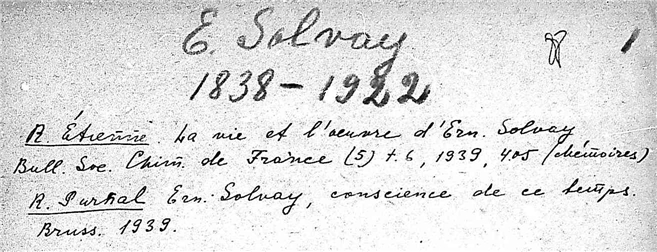 E. Solvay 1
1838-1922
A. Étienne. La vie et l'oeuvre d'Ern. Solvay
Bull. Soc. Chim. de France (5) t. 6, 1939, 405 (Mémoires)
R. Purnal Ern. Solvay, conscience de ce temps.
Bruss. 1939.